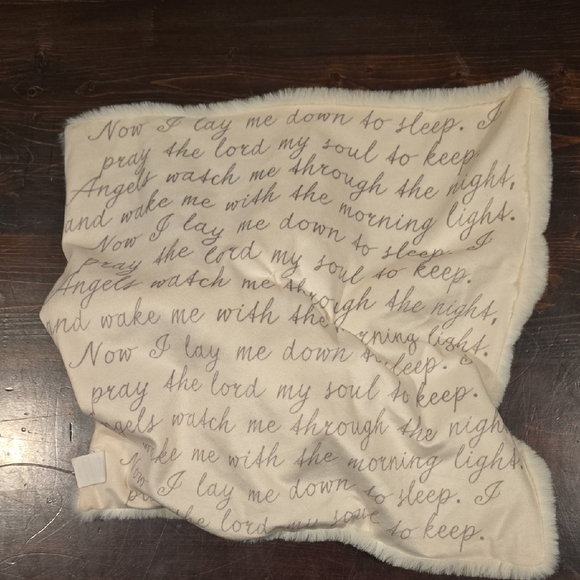 Now I lay me down to sleep. I
pray the lord my soul to keep.
Angels watch me through the night,
and wake me with the morning light.
Now I lay me down to sleep. I
pray the lord my soul to keep.
Angels watch me through the night,
and wake me with the morning light.
Now I lay me down to sleep. I
pray the lord my soul to keep.
Angels watch me through the night
wake me with the morning light.
Now I lay me down to sleep. I
the lord my soul to keep.